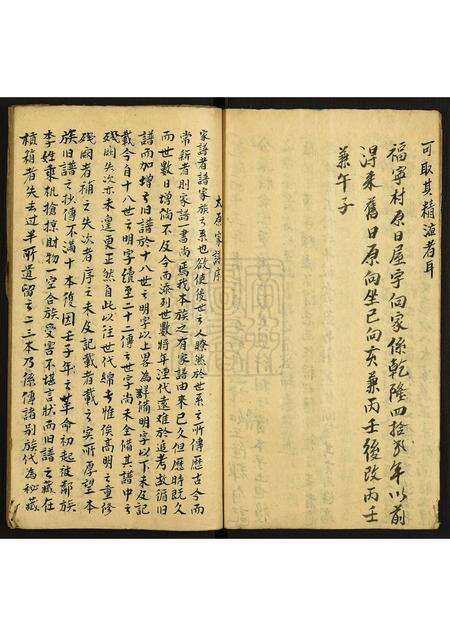 可取其精溢者耳
福寧村原日屋宇向家係乾隆四拾弍年以前
淂來舊日原向坐巳向亥兼丙壬後改丙壬
兼午子
太原家譜序
家譜者譜家族之系也欲使後世之人瞭然於世系之所傳歷古今而
常新者則家譜一書尚焉我本族之有家譜由來已久但歷時既久
而世數日增倘不及今而添列世數將年湮代遠难於追考故循旧
譜而加增之旧譜於十八世之明字以上畧為詳備明字以下未及記
載今自十八世之明字續至二十二傳之世字尚未全備其譜中之
殘闕失次亦未遑更正然自此以往世代綿長惟俟高明之重修
殘闕者補之失次者序之未及記載者載之实所厚望本
族旧譜之抄傳不滿十本復因壬子年之革命初起被鄰族
李姓乗机搶掠財物一空合族受害不堪言狀而旧譜之藏在
櫃箱者失去过半所遺留之二三本乃係傳諸别族代為秘藏